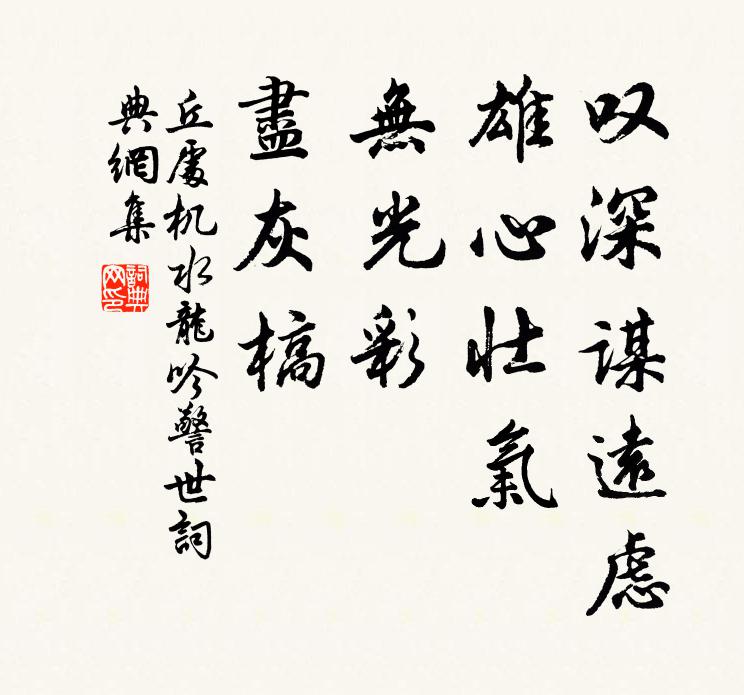 叹深謀遠慮
雄心壯氣
無光彩
盡灰槁
丘處机水龍吟警世詞
典網集
詞典网印